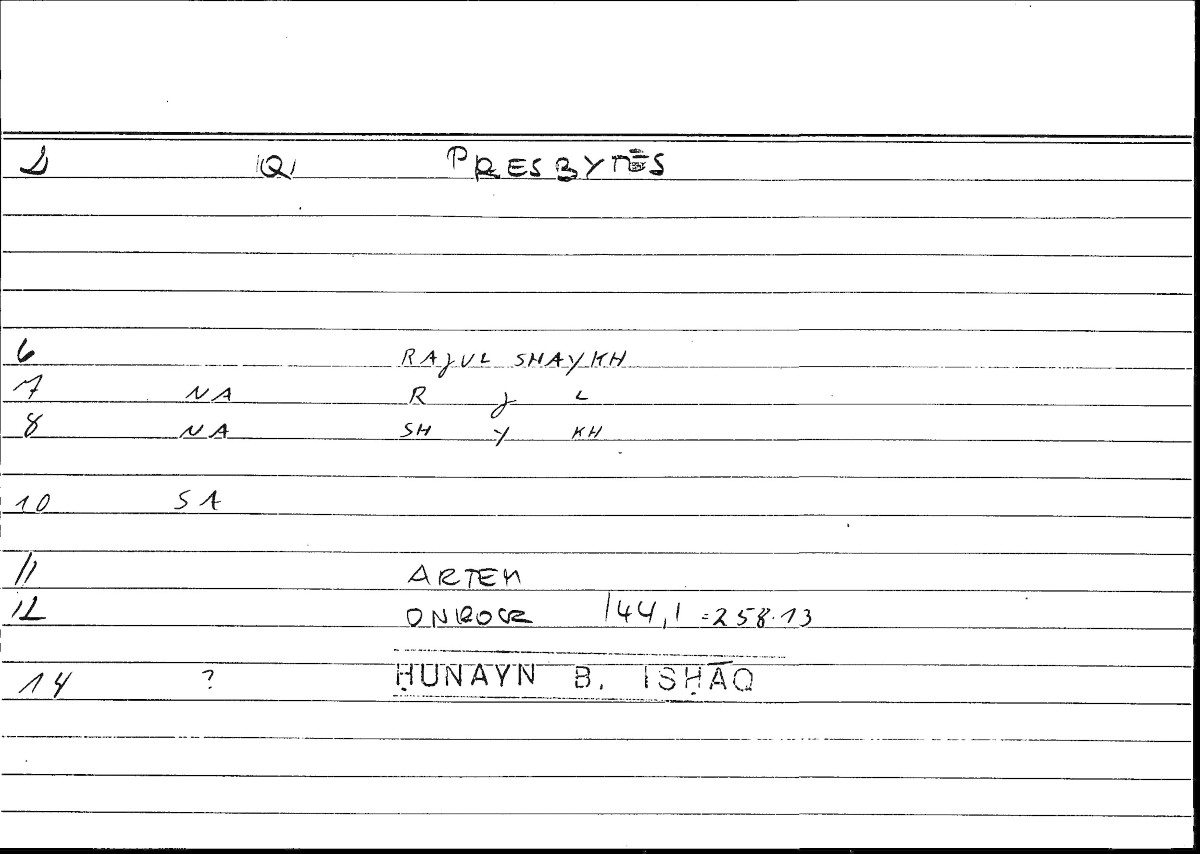 2 Q PRESBYTĒS
6 RAJUL SHAYKH
7 NA R J L
8 NA SH Y KH
10 SA
11 ARTEM
12 ONIROCR 144,1 =258.13
14 ? ḤUNAYN B. ISḤĀQ